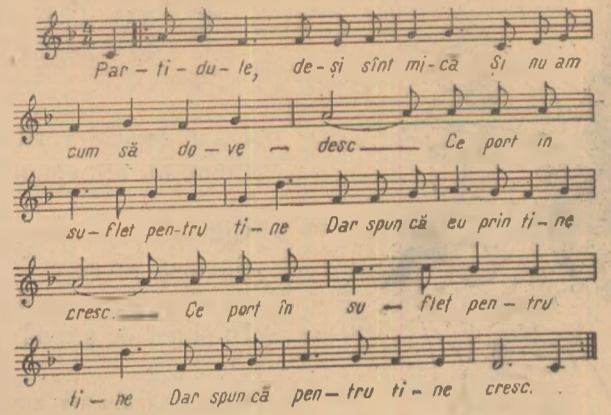 Par-ti-du-le, de-și sînt mi-că Și nu am
cum să do-ve - desc Ce port în
su-flet pen-tru ti-ne Dar spun că eu prin ti-ne
cresc. Ce port în su - flet pen-tru
ti-ne Dar spun că pen-tru ti-ne cresc.